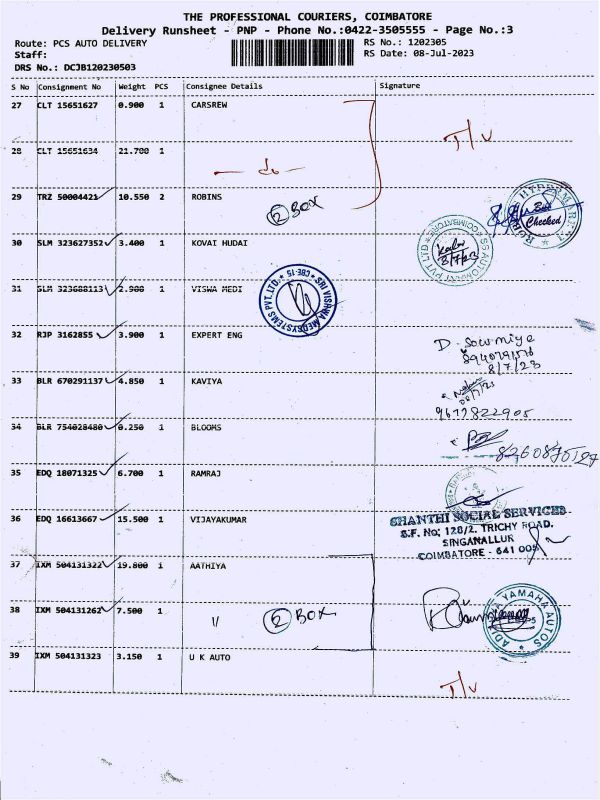 THE PROFESSIONAL COURIERS, COIMBATORE
Delivery Runsheet - PNP - Phone No.:0422-3505555 - Page No.:3
Route: PCS AUTO DELIVERY RS No.: 1202305
Staff: RS Date: 08-Jul-2023
DRS No.: DCJB120230503
S No Consignment No Weight PCS Consignee Details Signature
27 CLT 15651627 0.900 1 CARSREW
T/v
28 CLT 15651634 21.700 1
— do —
29 TRZ 50004421 10.550 2 ROBINS
2 BOX
Checked
30 SLM 323627352 3.400 1 KOVAI HUDAI
8/7/23
31 SLM 323688113 2.900 1 VISWA MEDI
SRI VISHWA MEDSYSTEMS PVT.LTD. CBE-15
32 RJP 3162855 3.900 1 EXPERT ENG
D. Sowmiya
8/7/23
33 BLR 670291137 4.850 1 KAVIYA
9677822905
34 BLR 754028480 0.250 1 BLOOMS
8260875127
35 EDQ 18071325 6.700 1 RAMRAJ
36 EDQ 16613667 15.500 1 VIJAYAKUMAR
SHANTHI SOCIAL SERVICES
S.F. No: 128/2. TRICHY ROAD.
SINGANALLUR
COIMBATORE - 641 005
37 IXM 504131322 19.800 1 AATHIYA
38 IXM 504131262 7.500 1 〃 2 BOX
YAMAHA AUTOS
39 IXM 504131323 3.150 1 U K AUTO
T/v